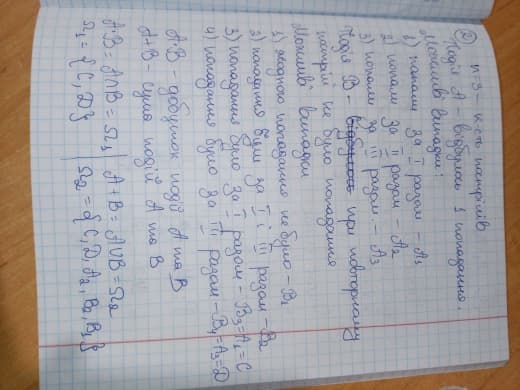 ② n=3 – к-сть патрнів
Подія А – відбулось 1 попадання.
Можливі випадки:
1) попали за I разом – A₁
2) попали за II разом – A₂
3) попали за III разом – A₃
Подія В – при повторному
патрнлі не було попадання
Можливі випадки
1) жодного попадання не було – B₁
2) попадання були за I і III разом – B₂
3) попадання було за I разом – B₃=A₁=C
4) попадання було за III разом – B₄=A₃=D
A·B – добуток подій А та В
A+B – сума подій А та В
A·B = A∩B = Ω₁ | A+B = A∪B = Ω₂
Ω₁ = {C, D} | Ω₂ = {C, D, A₂, B₂, B₁}